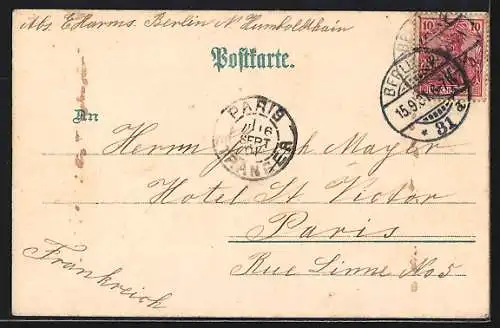 Abs. E Harms. Berlin N Humboldthain
Postkarte.
An
Herrn Joseph Mayer
Hotel St Victor
Paris
Rue Linne No 5
Frankreich
PARIS
16
SEPT
ETRANGER
10 10
BERLIN
15.9.
* 31 a.